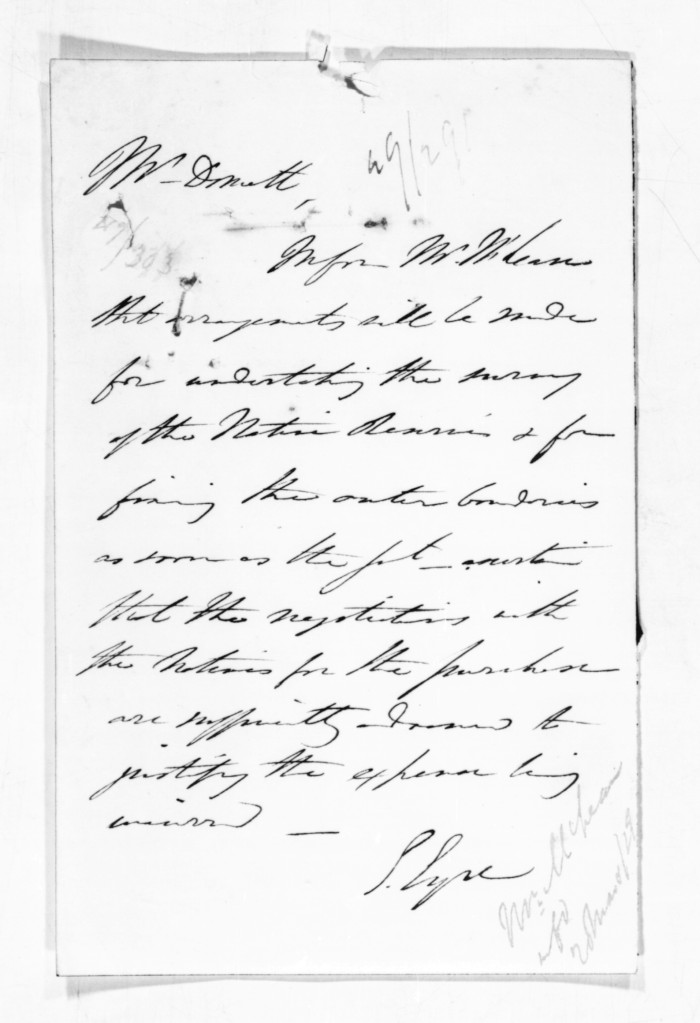 Mr Domett,
49/291
49/303
Inform Mr McLean
that arrangements will be made
for undertaking the survey
of the Native Reserves & for
fixing the outer boundaries
as soon as the Govt ascertain
that the negotiations with
the Natives for the purchase
are sufficiently advanced to
justify the expense being
incurred —
E. Eyre
Mr McLean